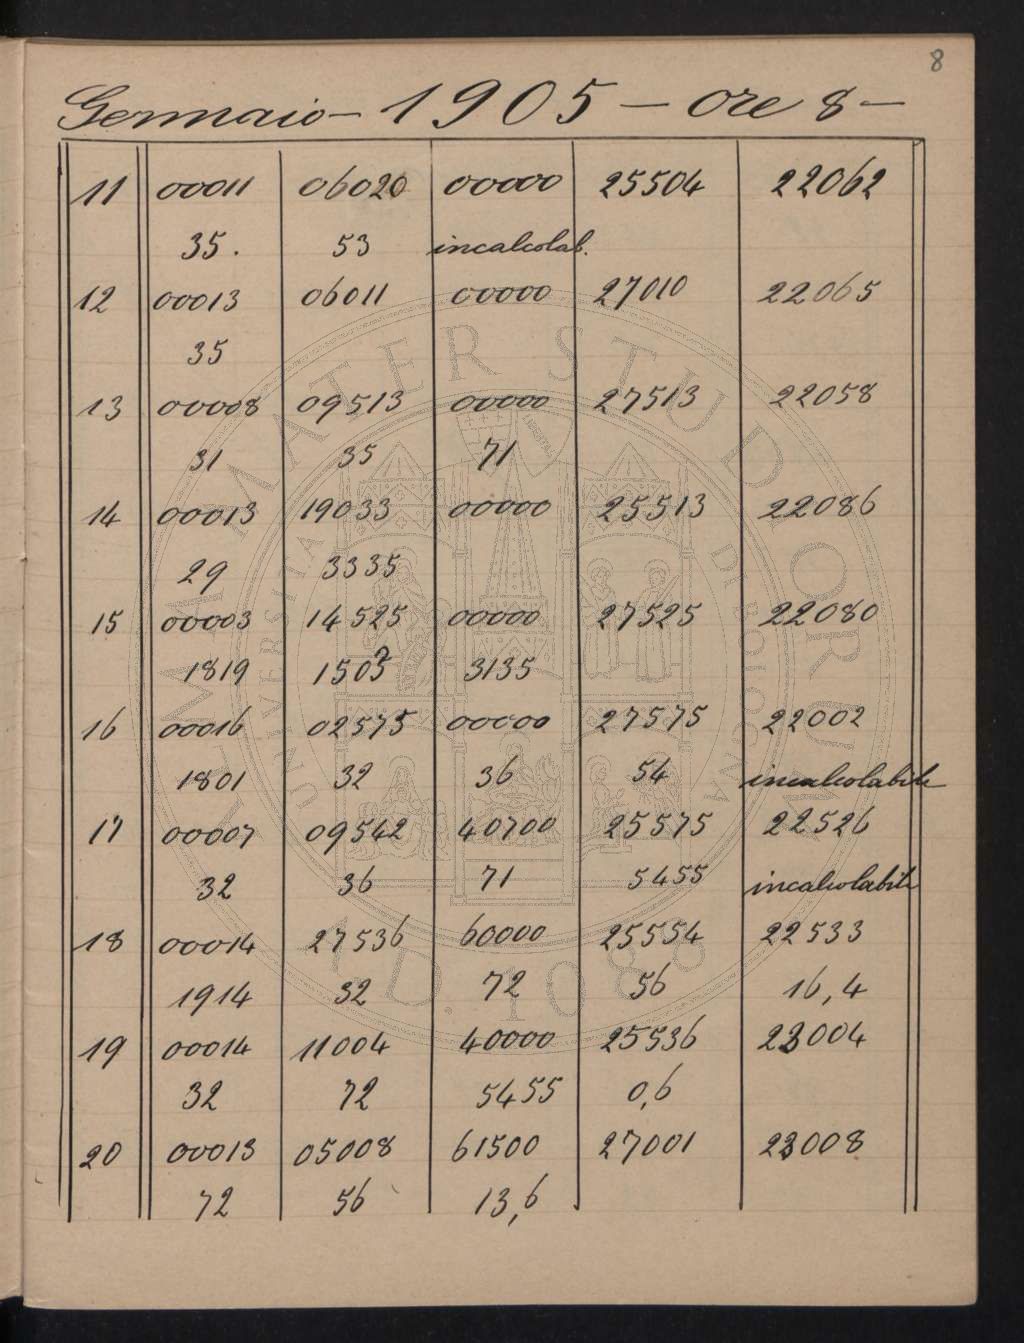 8
Gennaio - 1905 - ore 8 -
11 00011 06020 00000 25504 22062
35. 53 incalcolab.
12 00013 06011 00000 27010 22065
35
13 00008 09513 00000 27513 22058
31 35 71
14 00013 19033 00000 25513 22086
29 3335
15 00003 14525 00000 27525 22080
1819 1503 3135
16 00016 02575 00000 27575 22002
1801 32 36 54 incalcolabile
17 00007 09542 40700 25575 22526
32 36 71 5455 incalcolabile
18 00014 27536 60000 25554 22533
1914 32 72 56 16,4
19 00014 11004 40000 25536 23004
32 72 5455 0,6
20 00013 05008 61500 27001 23008
72 56 13,6
ALMA MATER STUDIORUM
A.D. 1088